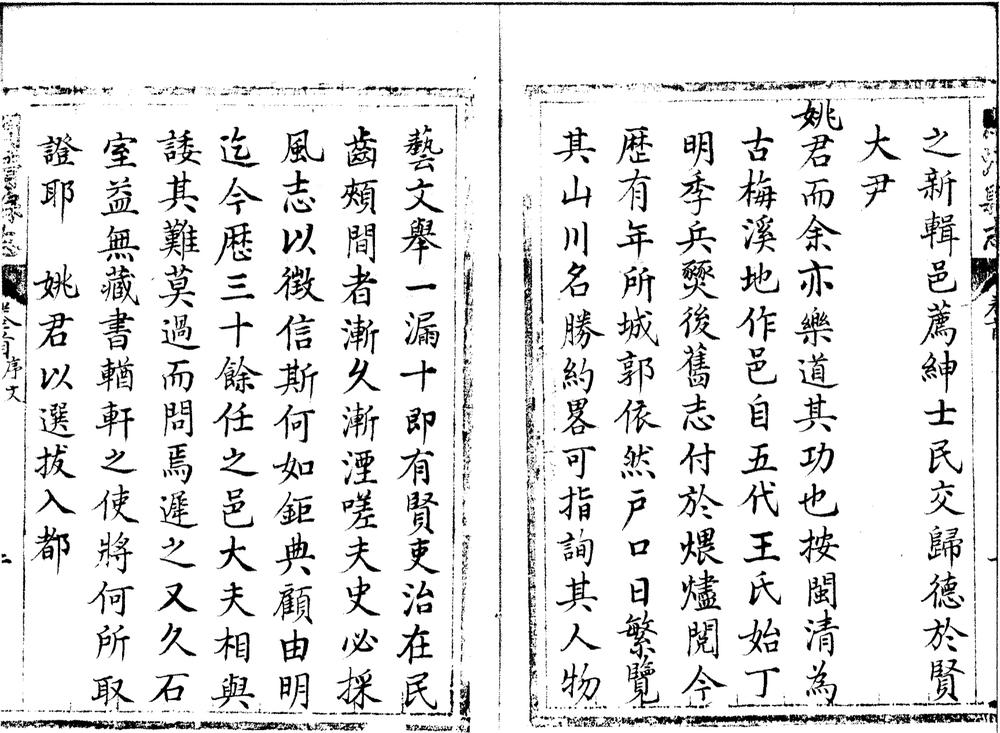 之新輯邑薦紳士民交歸德於賢
大尹
姚君而余亦樂道其功也按閩清為
古梅溪地作邑自五代王氏始丁
明季兵燹後舊志付於煨燼閱今
歷有年所城郭依然戶口日繁覽
其山川名勝約畧可指詢其人物
藝文舉一漏十即有賢吏治在民
齒頰間者漸久漸湮嗟夫史必採
風志以徵信斯何如鉅典顧由明
迄今歷三十餘任之邑大夫相與
諉其難莫過而問焉遲之又久石
室益無藏書輶軒之使將何所取
證耶　姚君以選拔入都
序文